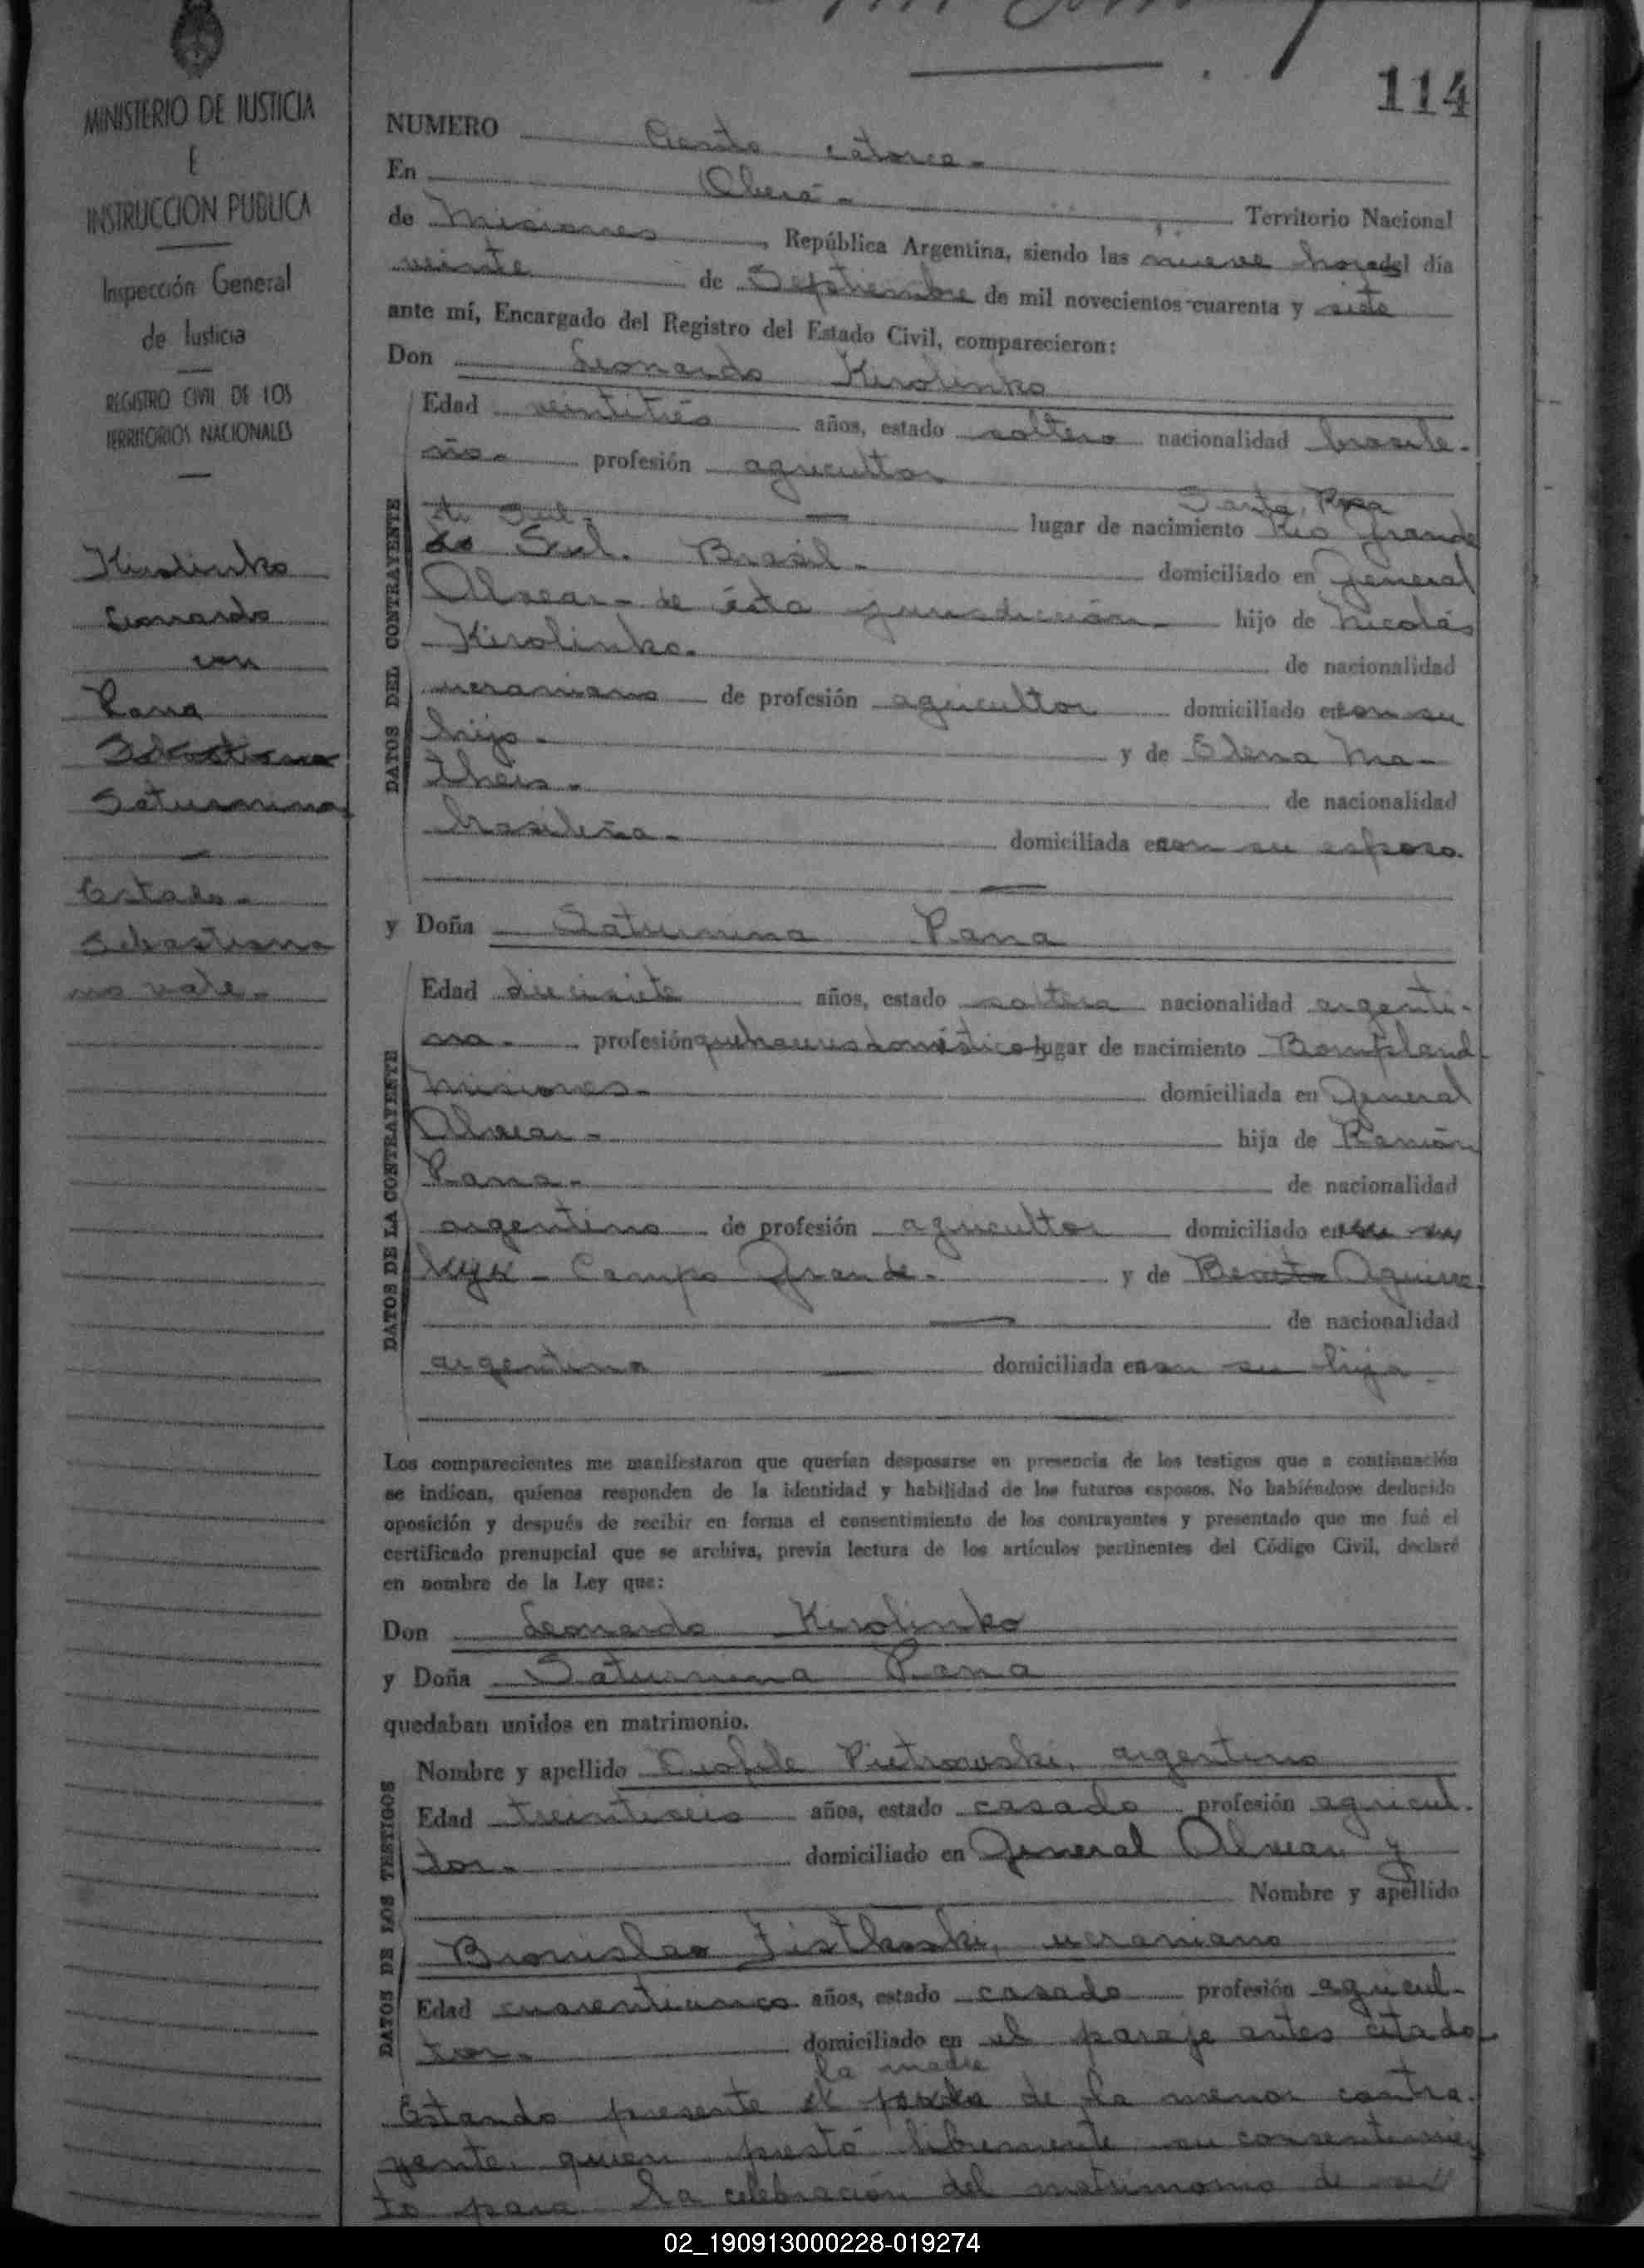 114
MINISTERIO DE JUSTICIA
E
INSTRUCCION PUBLICA
Inspección General
de Justicia
REGISTRO CIVIL DE LOS
TERRITORIOS NACIONALES
Kirolinko
Leonardo
con
Pana
Sebastiana
Saturnina
Estado-
Sebastiana
no vale-
NUMERO Ciento catorce-
En Oberá- Territorio Nacional
de Misiones, República Argentina, siendo las nueve horas del día
veinte de Septiembre de mil novecientos cuarenta y siete
ante mí, Encargado del Registro del Estado Civil, comparecieron:
Don Leonardo Kirolinko
DATOS DEL CONTRAYENTE
Edad veintitrés años, estado soltero nacionalidad brasile-
ño- profesión agricultor
Santa Rosa
lugar de nacimiento Rio Grande
do Sul. Brasil- domiciliado en General
Alvear- de ésta jurisdicción- hijo de Nicolás
Kirolinko. de nacionalidad
ucraniano de profesión agricultor domiciliado en con su
hijo- y de Elena Ma-
theis- de nacionalidad
brasileña- domiciliada en con su esposo.
y Doña Saturnina Pana
DATOS DE LA CONTRAYENTE
Edad diecisiete años, estado soltera nacionalidad argenti-
na- profesión quehaceres domésticos lugar de nacimiento Bompland
Misiones- domiciliada en General
Alvear- hija de Ramón
Pana- de nacionalidad
argentino de profesión agricultor domiciliado en con su
hija- Campo Grande- y de Benita Aguirre
de nacionalidad
argentina domiciliada en con su hija-
Los comparecientes me manifestaron que querían desposarse en presencia de los testigos que a continuación
se indican, quienes responden de la identidad y habilidad de los futuros esposos. No habiéndose deducido
oposición y después de recibir en forma el consentimiento de los contrayentes y presentado que me fué el
certificado prenupcial que se archiva, previa lectura de los artículos pertinentes del Código Civil, declaré
en nombre de la Ley que:
Don Leonardo Kirolinko
y Doña Saturnina Pana
quedaban unidos en matrimonio.
DATOS DE LOS TESTIGOS
Nombre y apellido Pietrowski, argentino
Edad treintiseis años, estado casado profesión agricul-
tor- domiciliado en General Alvear y
Nombre y apellido
Bronislao ucraniano
Edad cuarenticinco años, estado casado profesión agricul-
tor- domiciliado en el paraje antes citado
la madre
Estando presente el padre de la menor contra-
yente, quien prestó libremente su consentimien
to para la celebración del matrimonio de su
02_190913000228-019274